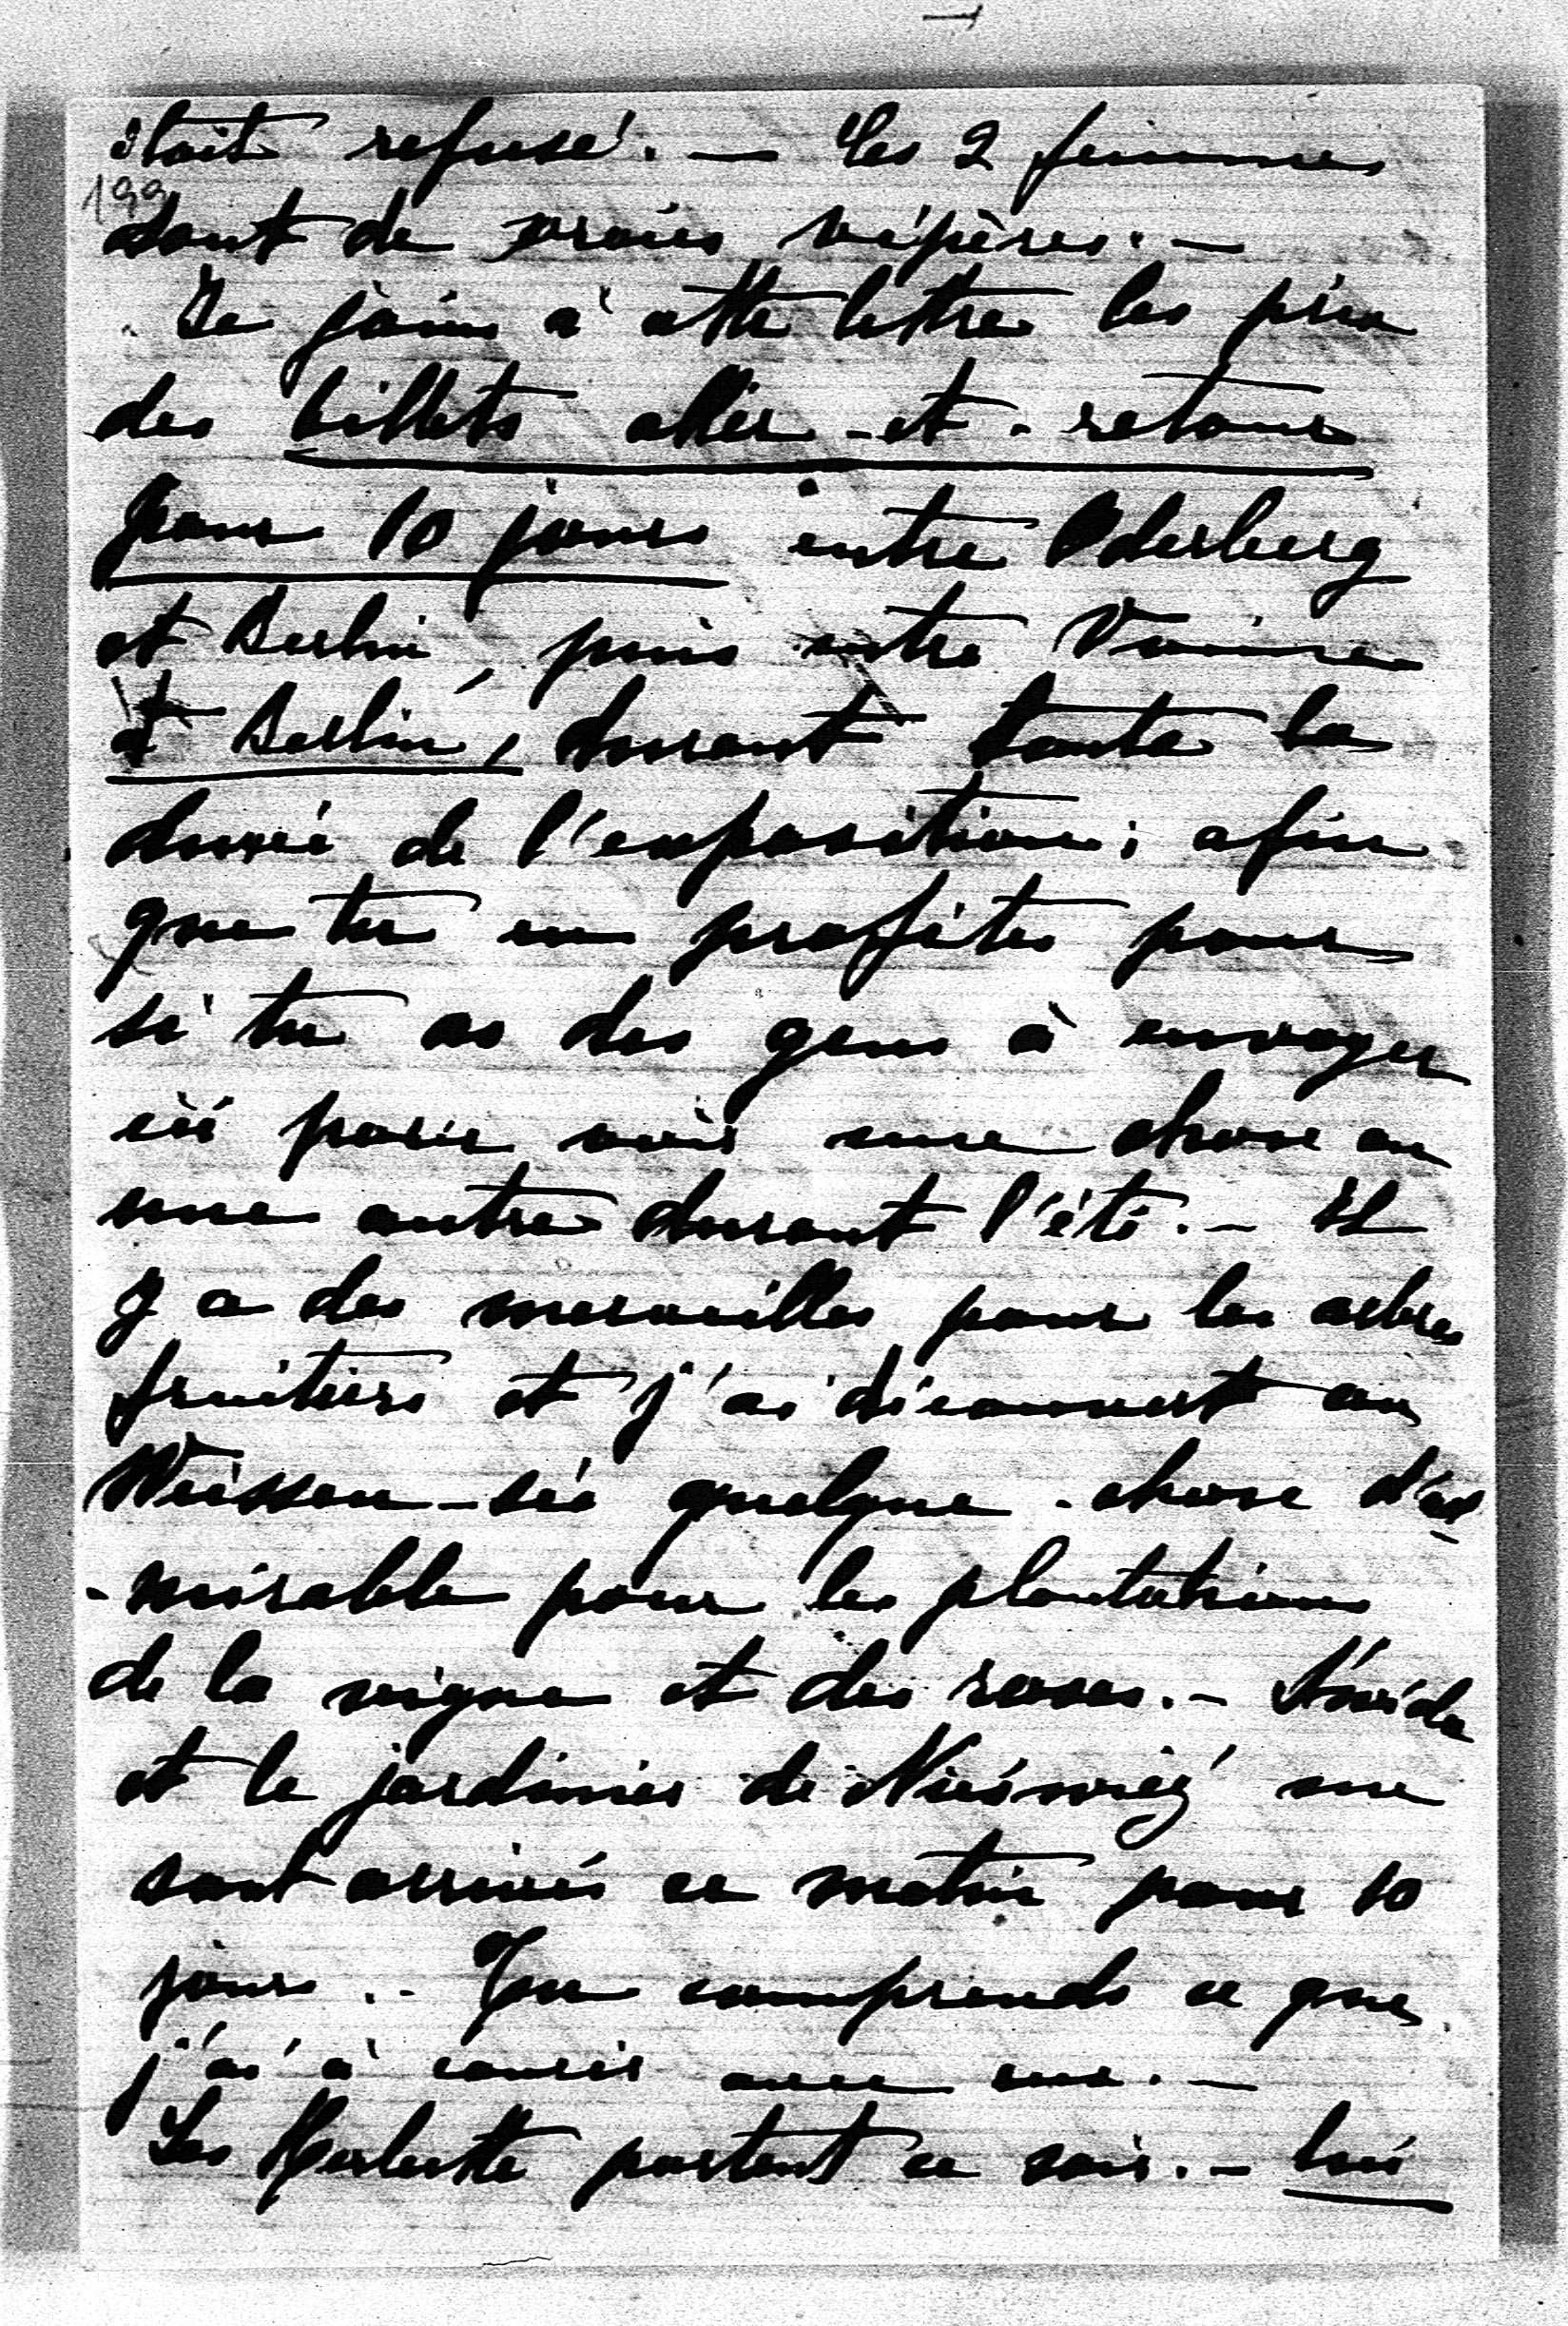 était refusé. — Les 2 femmes
199
sont de vraies vipères. —
Je joins à cette lettre les prix
des billets aller-et-retour
pour 10 jours entre Oderberg
et Berlin, puis entre Vienne
et Berlin, durant toute la
durée de l'exposition; afin
que tu en profites pour
si tu as des gens à envoyer
ici pour voir une chose ou
une autre durant l'été. — Il
y a des merveilles pour les arbres
fruitiers et j'ai découvert au
Weissen-sée quelque-chose d'ad
-mirable pour les plantations
de la vigne et des roses. —
et le jardinier de Nieśwież me
sont arrivés ce matin pour 10
jours.. Tu comprends ce que
j'ai à courir avec eux. —
Les partent ce soir. — Lui